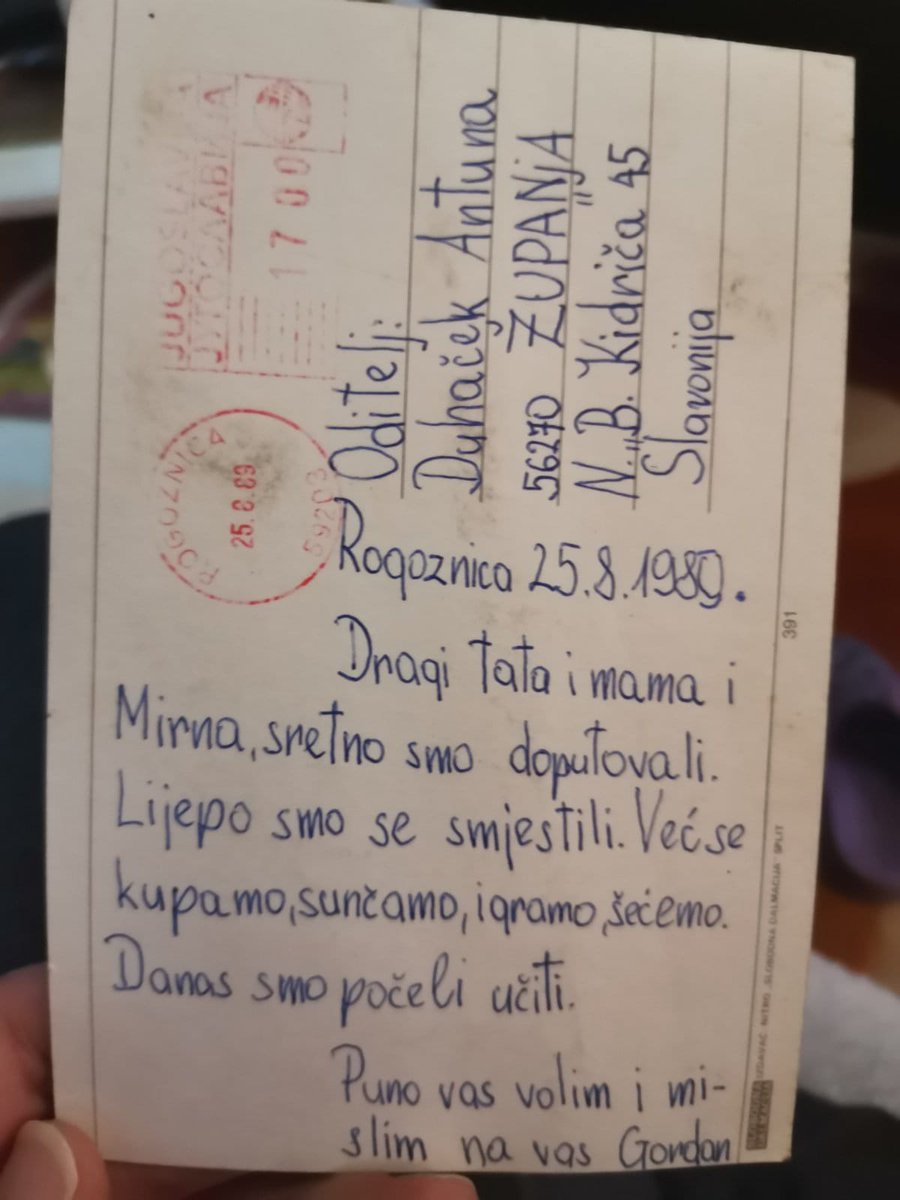 JUGOSLAV
ЈУГОСЛАВИЈА
1700
ROGOZNICA
25.8.89
59203
Oditelj:
Duhaček Antuna
56270 ŽUPANjA
N.„B. Kidriča" 45
Slavonija
Rogoznica 25.8.1989.
Dragi tata i mama i
Mirna, sretno smo doputovali.
Lijepo smo se smjestili. Već se
kupamo, sunčamo, igramo, šećemo.
Danas smo počeli učiti.
Puno vas volim i mi-
slim na vas Gordan
391
IZDAVAČ NITRO „SLOBODNA DALMACIJA" SPLIT